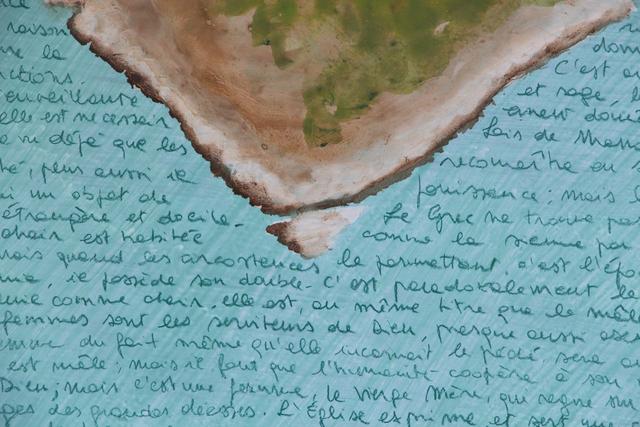 raison
ne la don
actions. C'est a
surveillante et sage,
elle est necessaire
a vu déjà que les Lois de Manu
té, peur aussi reconnaître en
i un objet de jouissance; mais
étrangère et docile. Le Grec ne trouve pas
chair est habitée comme la sienne par
mais quand les circonstances le permettent c'est l'épo
nie, il possède son double. C'est paradoxalement le
unie comme chair elle est, au même titre que le mâle
femmes sont les servitems de Dieu, presque aussi
du fait même qu'elle incarnait le péché sera
est mâle; mais il faut que l'humanité coopère à son
Dieu; mais c'est une femme, la Vierge Mère, qui règne sur
ges des grandes déesses. L'Église exprime et sert une